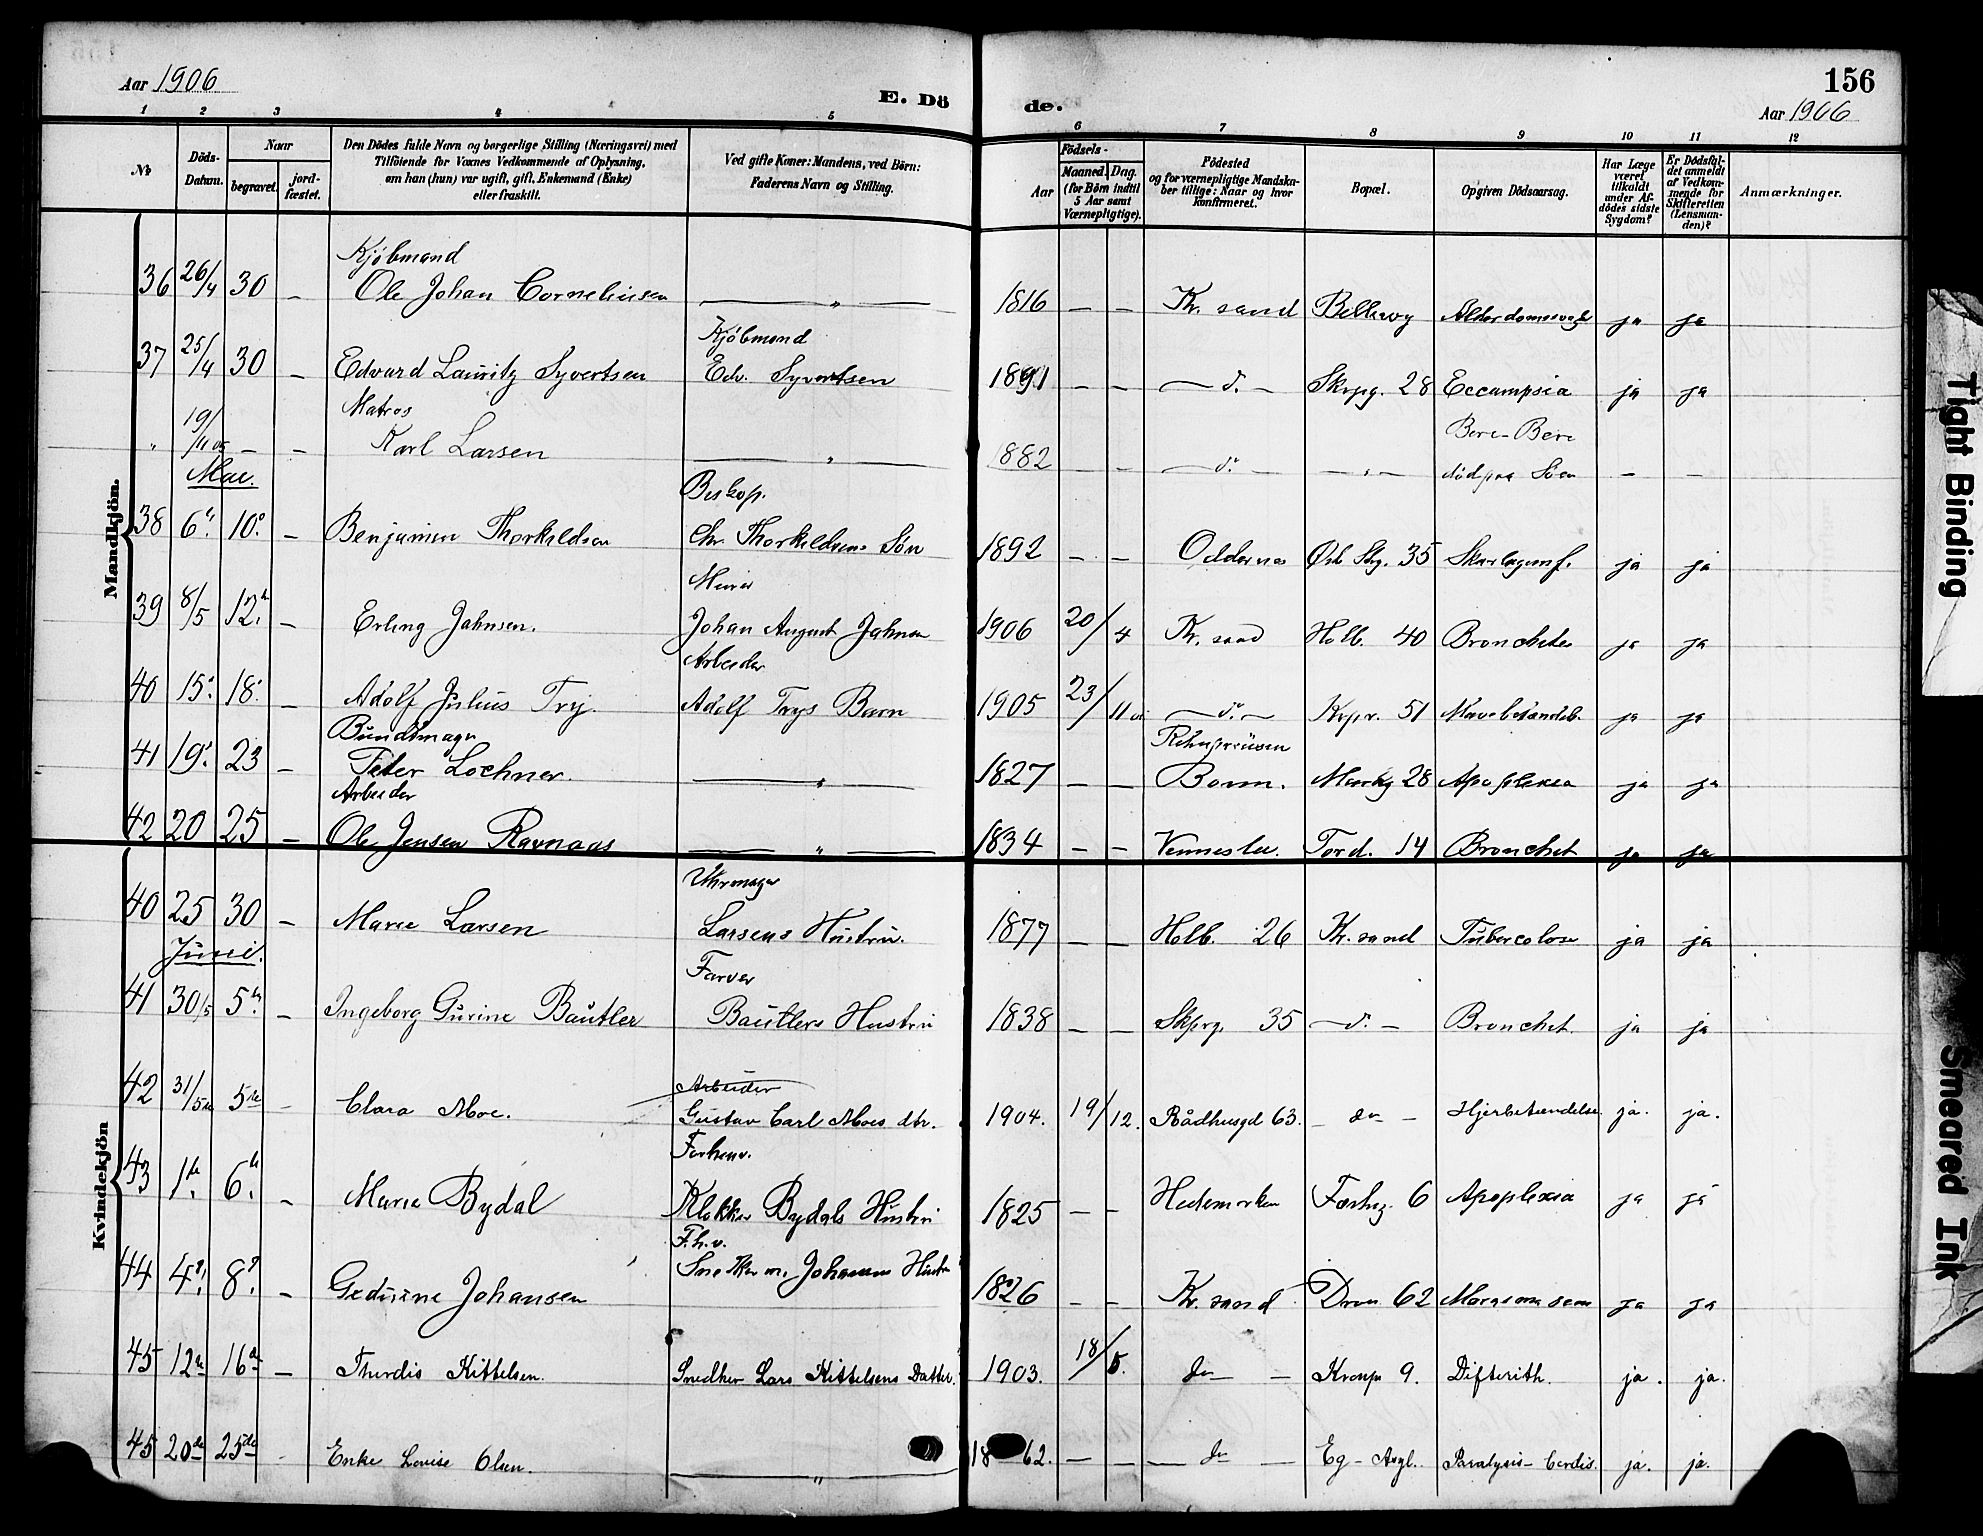 Aar 1906
E. Dö
de.
156
Aar 1906
1 2 3 4 5 6 7 8 9 10 11 12
No
Döds-Datum.
Naar
begravet.
jord-fæstet.
Den Dödes fulde Navn og borgerlige Stilling (Næringsvei) med
Tilföiende for Voxnes Vedkommende af Oplysning,
om han (hun) var ugift, gift, Enkemand (Enke)
eller fraskilt.
Ved gifte Koner: Mandens, ved Börn:
Faderens Navn og Stilling.
Födsels-
Aar
Maaned. Dag.
(for Børn indtil
5 Aar samt
Værnepligtige).
Födested
og for værnepligtige Mandska-
ber tillige: Naar og hvor
konfirmeret.
Bopæl.
Opgiven Dödsaarsag.
Har Læge
været
tilkaldt
under Af-
dödes sidste
Sygdom?
Er Dödsfal-
det anmeldt
af Vedkom-
mende for
Skifteretten
(Lensman-
den)?
Anmærkninger.
Mandkjön.
Kjøbmand
36 26/4 30 – Ole Johan Corneliusen — " — 1816 – – Kr. sand Bellevy Alderdomssvagh ja ja
Kjøbmand
37 25/4 30 – Edvard Lauritz Syvertsen Edv. Syvertsen 1891 – – – d. – Skvpg. 28 Eccampsia ja ja
Matros Bere-Bere
" 19/11 05 – – Karl Larsen — " — 1882 – – – d. – – " – död paa Söen – –
Mai.
Biskop.
38 6. 10. – Benjamin Thorkildsen Chr. Thorkildsens Sön 1892 – – Oddernes Øst Stg. 35 Skarlagensf. ja ja
Murer
39 8/5 12. – Erling Jahnsen. Johan August Jahnsen 1906 20/4 Kr. sand Holb. 40 Bronchites ja ja
Arbeider
40 15. 18. – Adolf Julius Try. Adolf Trys Barn 1905 23/11 – d. – Kvpr. 51 Mavebetændels. ja ja
Bundtmager Rhinpreüsen
41 19. 23 – Peter Lochner. — " — 1827 – – Bonn. Markg 28 Apoplexia ja ja
Arbeider
42 20 25 – Ole Jensen Ravnaas — " — 1834 – – Vennesla. Tord. 14 Bronchit ja ja
Kvindekjön
Uhrmager
40 25 30 – Marie Larsen Larsens Hustru. 1877 – – Holb. 26 Kr. sand Tubercolose ja ja
Juni.
Farver
41 30/5 5. – Ingeborg Gurine Bautler Bautlers Hustru 1838 – – Skprg. 35 – d. – Bronchit. ja ja
Arbeider
42 31/5 5te – Clara Moe. Gustav Carl Moes dtr. 1904. 19/12. Rådhusgd 63. – do – Hjerbetændelse. ja. ja.
Forhenv.
43 1. 6. – Marie Bydal Klokker Bydals Hustru 1825 – – Hedemarken Fæstng. 6 Apoplexia ja ja
F.h.v.
44 4. 8. – Gedurine Johansen Snedker m. Johansens Hustru 1826 – – Kr. sand Dron 62 Marasmus sen ja ja
45 12te 16de – Thordis Kittelsen. Snedker Lars Kittelsens Datter. 1903. 18/5. do – Kronp 9. Difterith. ja. ja.
45 20de 25de – Enke Lovise Olsen. — " — 18 62. – – – do – Eg-Asyl. Paralysis-Cordis. ja. ja.
Tight Binding
Smeared Ink